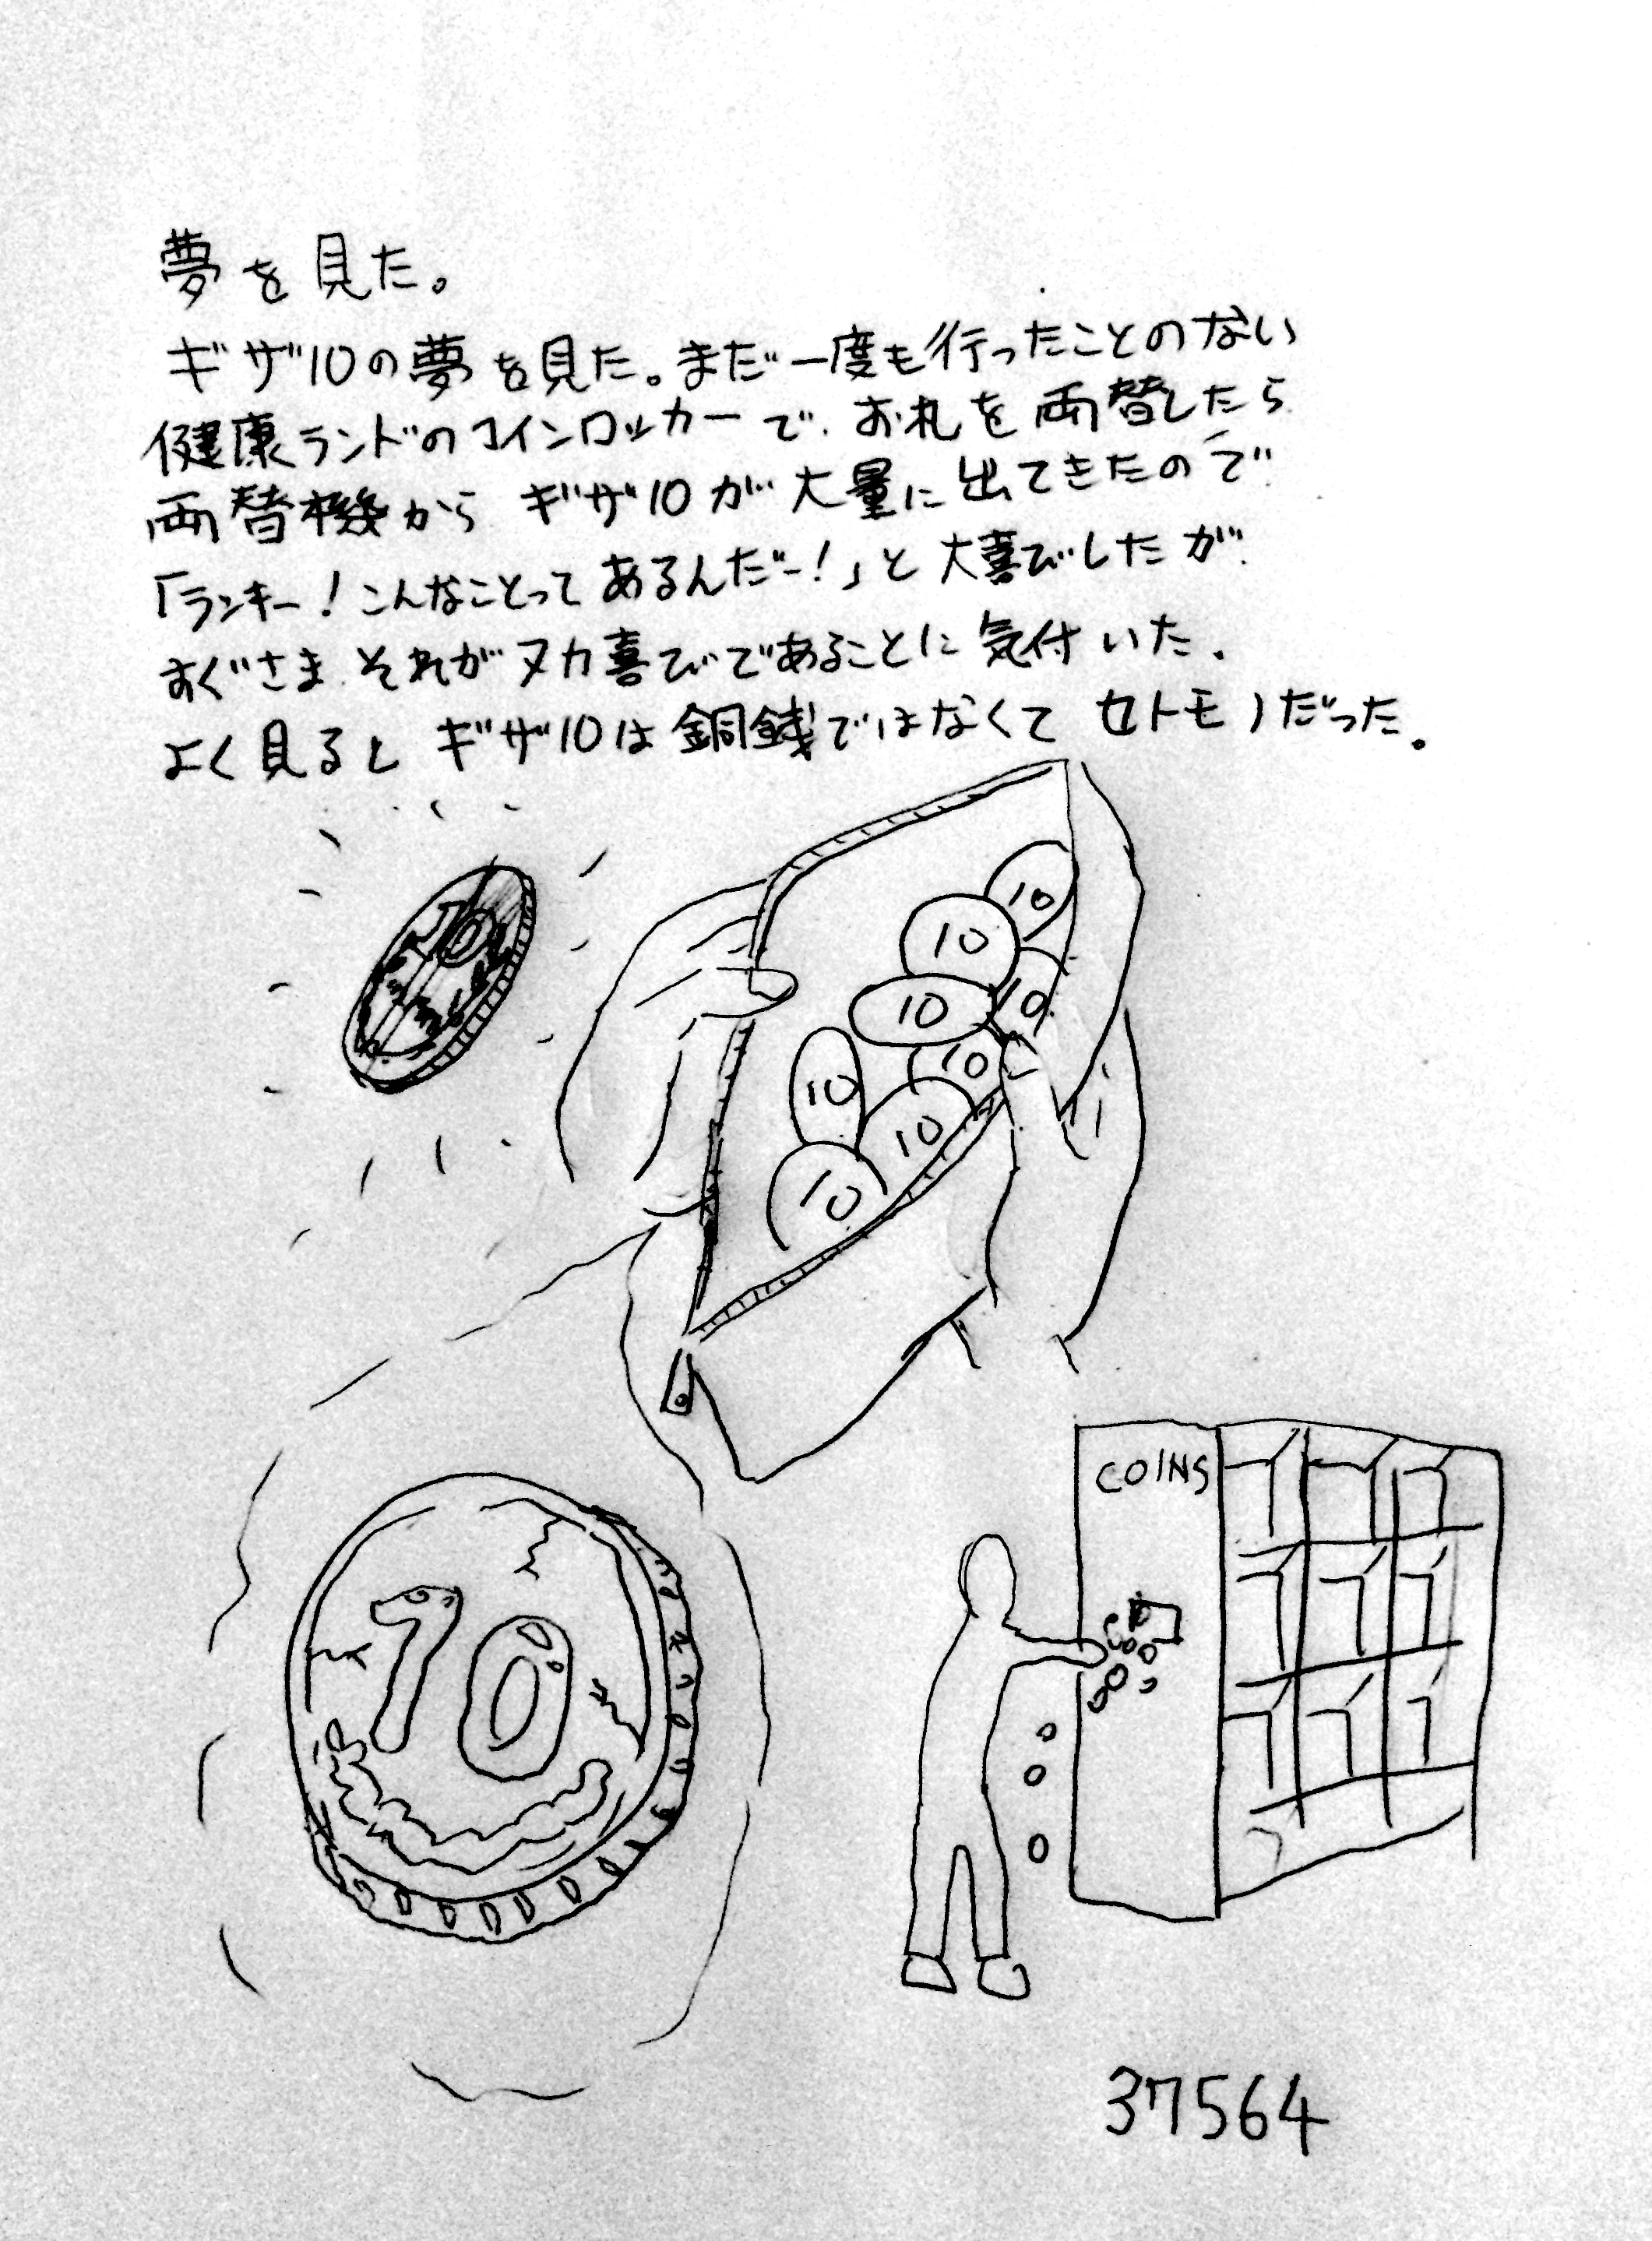 夢を見た。
ギザ10の夢を見た。まだ一度も行ったことのない
健康ランドのコインロッカーで、お札を両替したら
両替機から ギザ10が大量に出てきたので
「ランキー!こんなことってあるんだー!」と大喜びしたが、
すぐさま、それがヌカ喜びであることに気付いた。
よく見るとギザ10は銅銭ではなくてセトモノだった。
10
10
10
10
10
10
10
10
10
10
COINS
37564